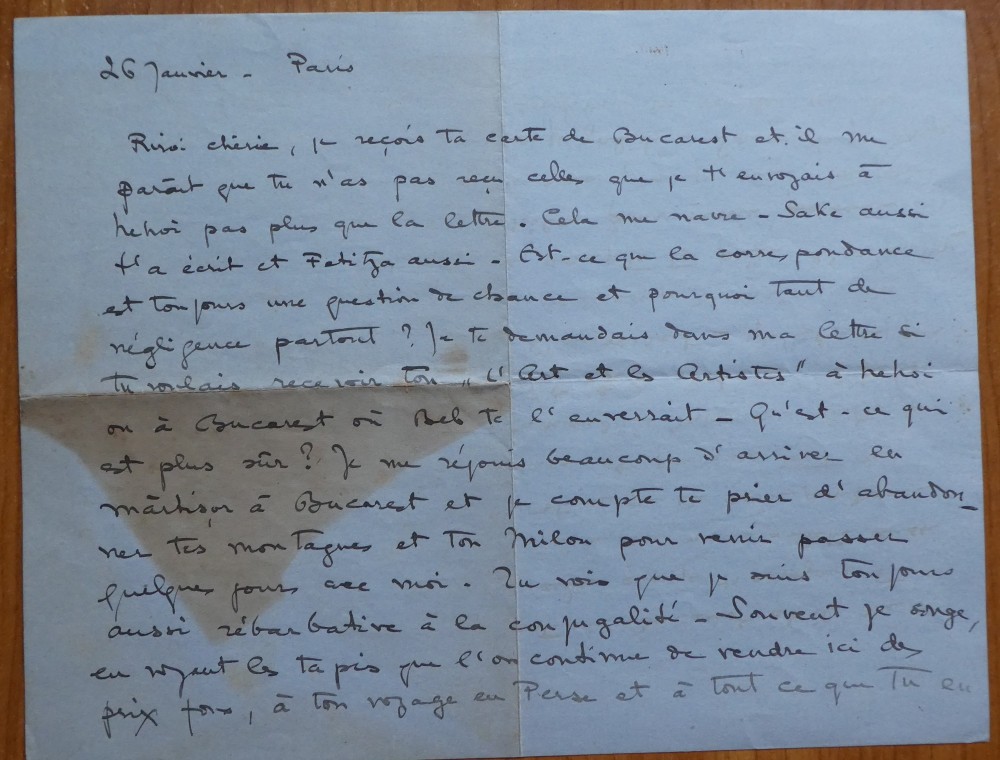 26 Janvier - Paris
chérie, je reçois ta carte de Bucarest et il me
paraît que tu n'as pas reçu celles que je t'envoyais à
pas plus que la lettre. Cela me navre - Sake aussi
t'a écrit et Fetitza aussi - Est-ce que la correspondance
est toujours une question de chance et pourquoi tant de
négligence partout ? Je te demandais dans ma lettre si
tu voulais recevoir ton "L'Art et les Artistes" à
ou à Bucarest où Beb te l'enverrait - Qu'est-ce qui
est plus sûr ? Je me réjouis beaucoup d'arriver en
mărțișor à Bucarest et je compte te prier d'abandon-
ner tes montagnes et ton Milou pour venir passer
quelques jours avec moi. Tu vois que je suis toujours
aussi rébarbative à la conjugalité - Souvent je songe,
en voyant les tapis que l'on continue de vendre ici des
prix fous, à ton voyage en Perse et à tout ce que tu en